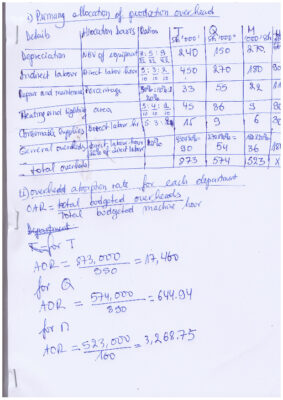 i) Primary allocation of production overhead
Details Allocation basis Ratios Q M
sh '000' sh '000'
Depreciation NBV of equipment 240 150 270
Indirect labour Direct labour hour 5:3:2 450 270 180
Repair and maintenance Percentage 33 55 22
Heating and lighting area 5:4:1 45 36 9
Consumable supplies Direct labour hr 5:3: 15 9 6
General overheads Direct labour hours 20% 90 54 36
total overheads 873 574 523 X
ii) overhead absorption rate for each department
OAR = total budgeted overheads
Total budgeted machine hour
for T
AOR = 873,000 = 17,460
for Q
AOR = 574,000 = 644.94
890
for M
AOR = 523,000 = 3,268.75
160